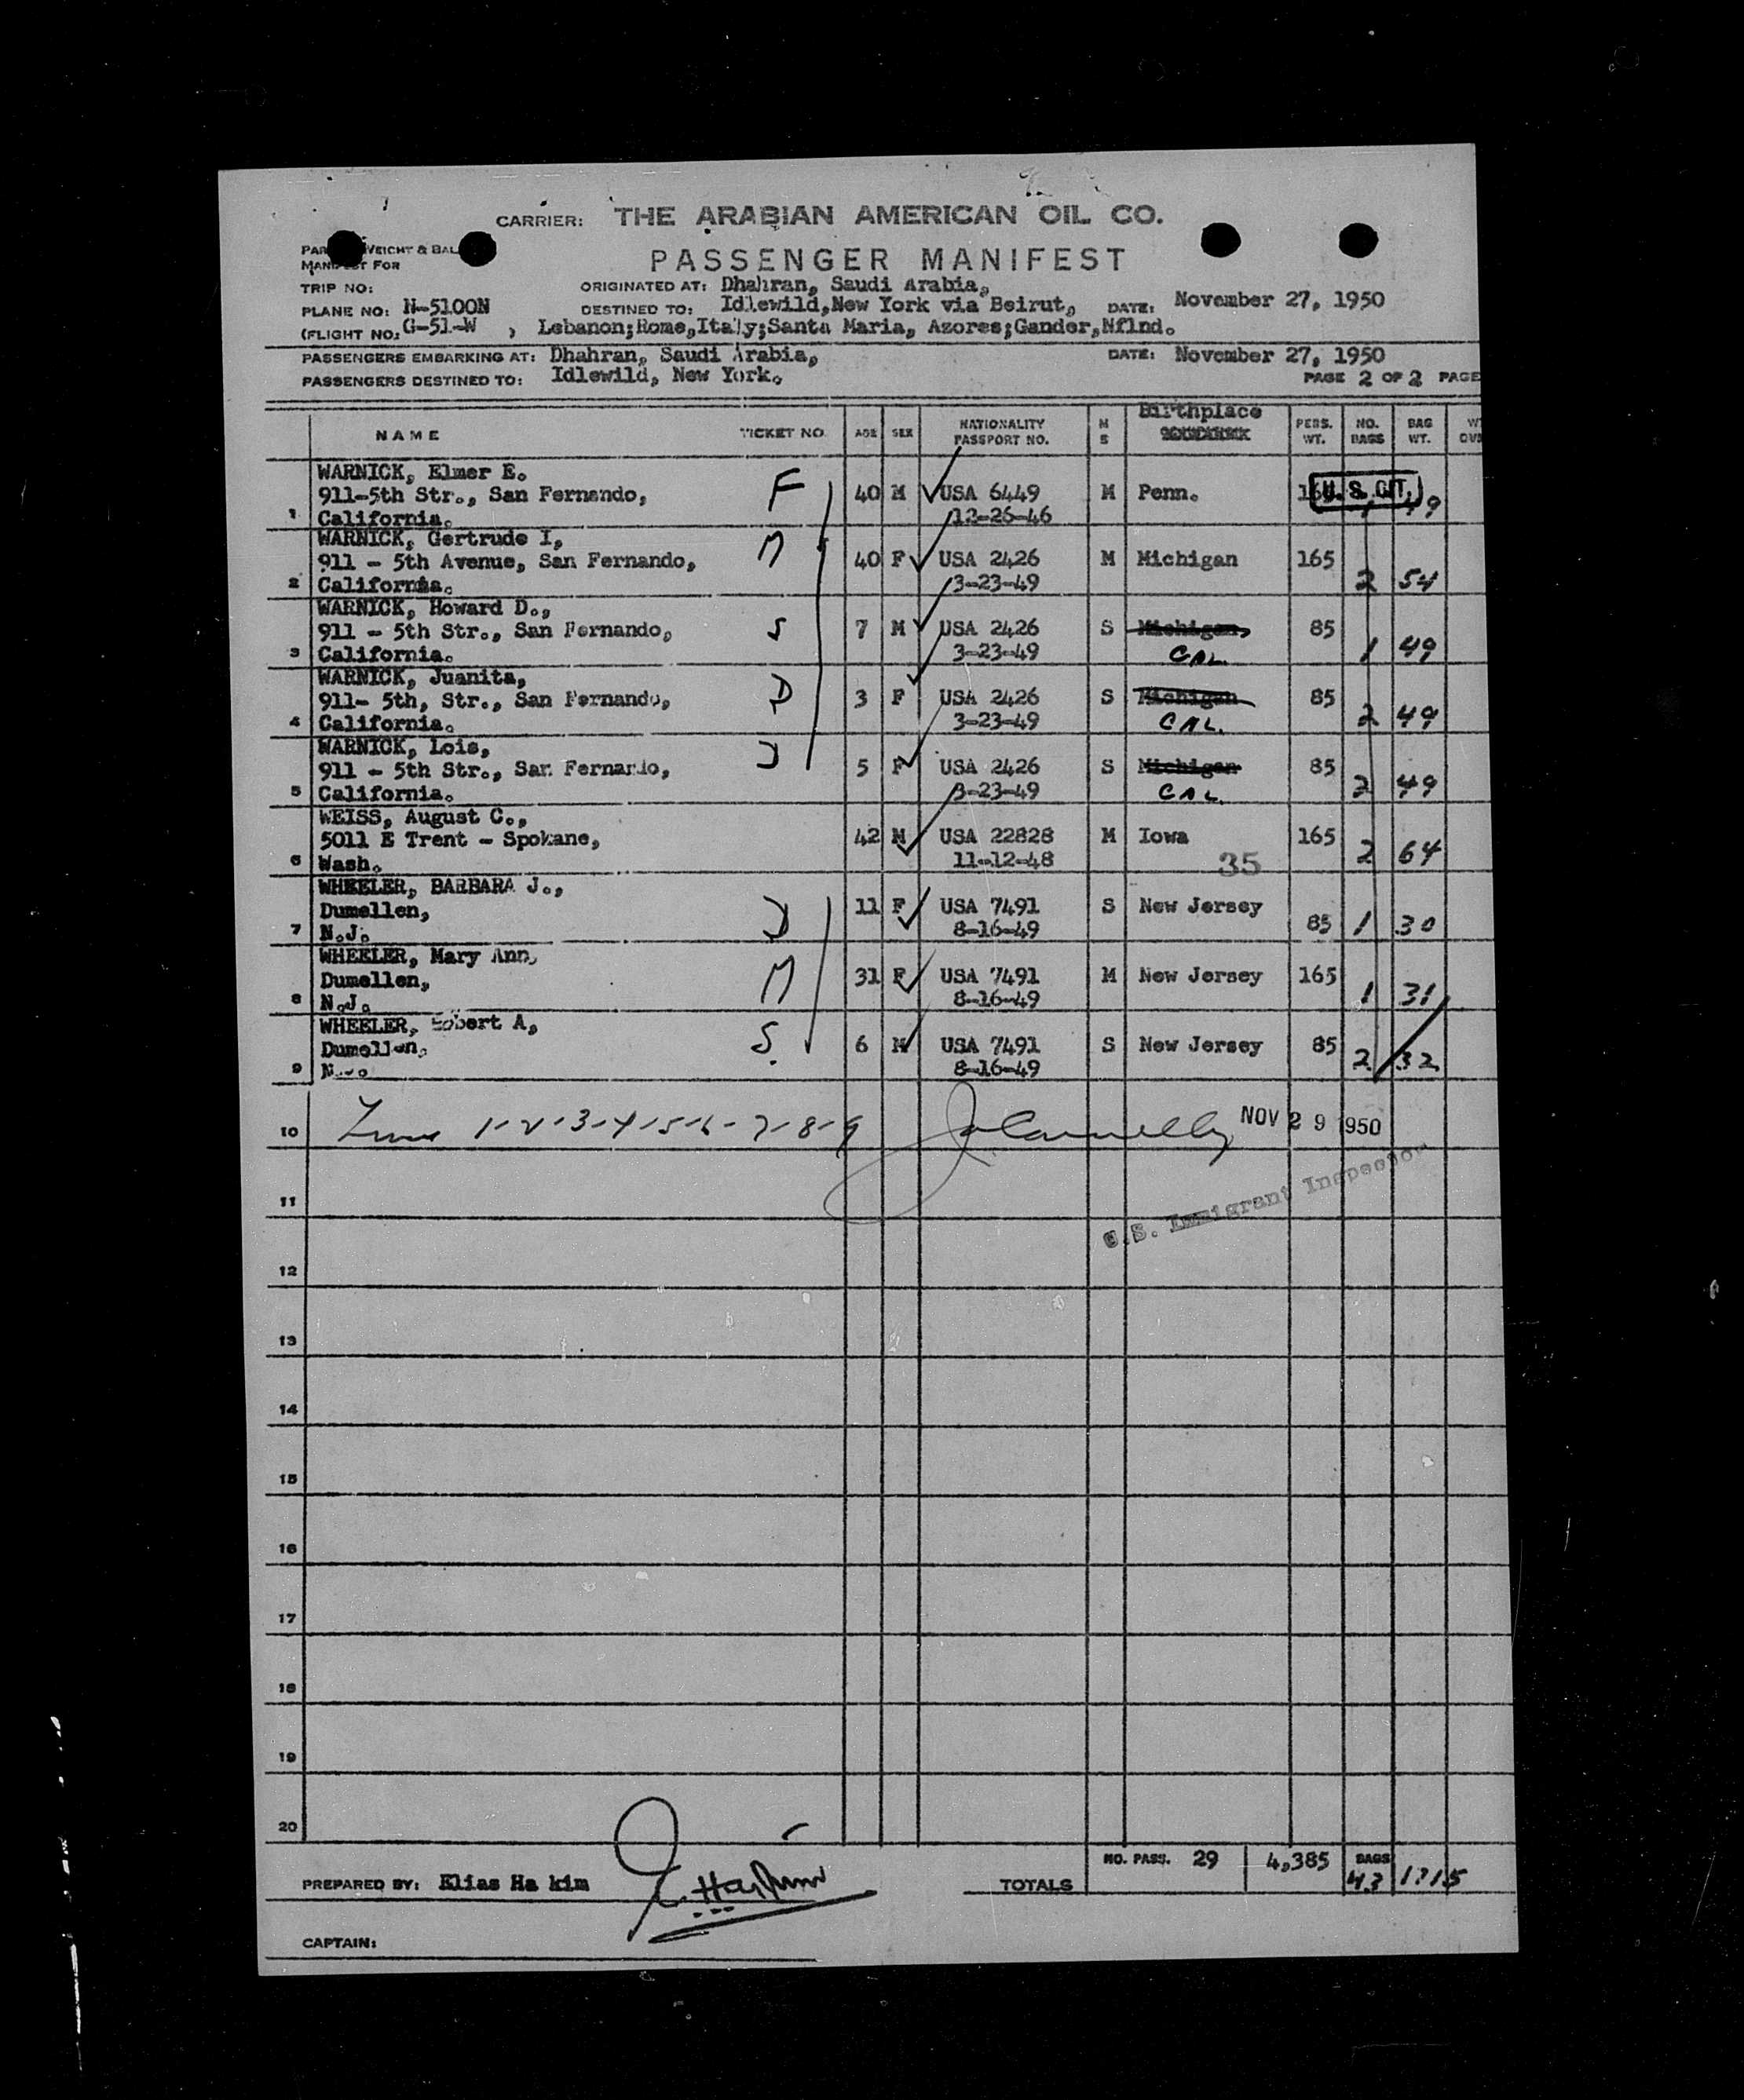 CARRIER: THE ARABIAN AMERICAN OIL CO.
PASSENGER MANIFEST
TRIP NO: ORIGINATED AT: Dhahran, Saudi Arabia,
PLANE NO: N-5100N DESTINED TO: Idlewild,New York via Beirut, DATE: November 27, 1950
(FLIGHT NO: G-51-W , Lebanon;Rome,Italy;Santa Maria, Azores;Gander,Nflnd.
PASSENGERS EMBARKING AT: Dhahran, Saudi Arabia, DATE: November 27, 1950
PASSENGERS DESTINED TO: Idlewild, New York. PAGE 2 OF 2 PAGE
Birthplace
NAME TICKET NO. AGE SEX NATIONALITY PASSPORT NO. M S PERS. WT. NO. BAGS BAG WT.
WARNICK, Elmer E.
911-5th Str., San Fernando, F 40 M USA 6449 M Penn. U.S. CIT.
1 California. 12-26-46 1 49
WARNICK, Gertrude I,
911 - 5th Avenue, San Fernando, M 40 F USA 2426 M Michigan 165
2 California. 3-23-49 2 54
WARNICK, Howard D.,
911 - 5th Str., San Fernando, S 7 M USA 2426 S Michigan, 85
3 California. 3-23-49 CAL. 1 49
WARNICK, Juanita,
911- 5th, Str., San Fernando, D 3 F USA 2426 S Michigan 85
4 California. 3-23-49 CAL. 2 49
WARNICK, Lois,
911 - 5th Str., San Fernando, D 5 F USA 2426 S Michigan 85
5 California. 3-23-49 CAL. 2 49
WEISS, August C.,
5011 E Trent - Spokane, 42 M USA 22828 M Iowa 165
6 Wash. 11-12-48 35 2 64
WHEELER, BARBARA J.,
Dumellen, D 11 F USA 7491 S New Jersey
7 N.J. 8-16-49 85 1 30
WHEELER, Mary Ann,
Dumellen, M 31 F USA 7491 M New Jersey 165
8 N.J. 8-16-49 1 31
WHEELER, Robert A,
Dumellen, S. 6 M USA 7491 S New Jersey 85
9 8-16-49 2 32
10 1-2-3-4-5-6-7-8-9 NOV 29 1950
U.S. Immigrant Inspector
11
12
13
14
15
16
17
18
19
20
NO. PASS. 29 4,385 BAGS
PREPARED BY: Elias Hakim E. Hakim TOTALS 43
CAPTAIN: